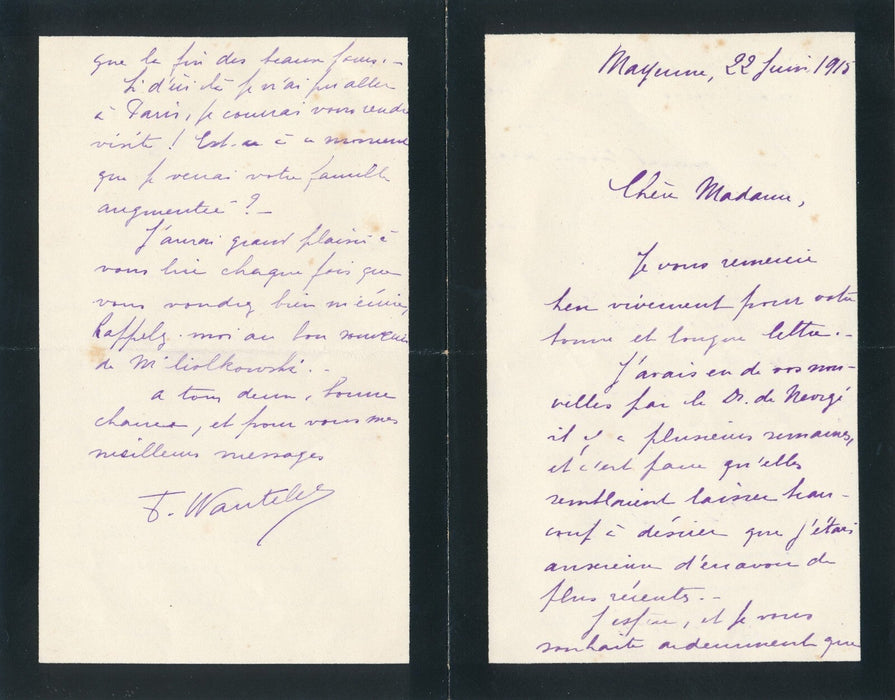 Mayenne, 22 Juin 1915
Chère Madame,
Je vous remercie
bien vivement pour votre
bonne et longue lettre.-
J'avais eu de vos nou-
velles par le Dr. de
il y a plusieurs semaines,
et c'est parce qu'elles
semblaient laisser beau-
coup à désirer que j'étais
anxieux d'en avoir de
plus récents.-
J'espère, et je vous
souhaite ardemment que
que la fin des beaux jours.-
Si d'ici là je n'ai pu aller
à Paris, je courrai vous rendre
visite! Est-ce à ce moment
que je verrai votre famille
augmentée?-
J'aurai grand plaisir à
vous lire chaque fois que
vous voudrez bien m'écrire,
Rappelez-moi au bon souvenir
de Mr
a tous deux, bonne
chance, et pour vous mes
meilleurs messages